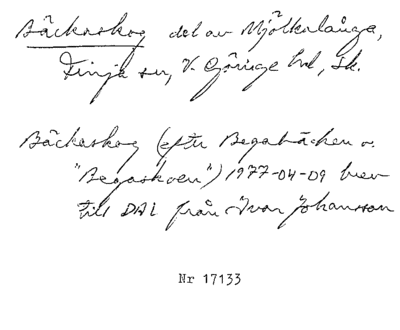 Bäckaskog del av Mjölkalånga,
Finja sn, V. Göinge hd, Sk.
Bäckaskog (efter Begabäcken o.
"Begaskoen") 1977-04-09 brev
till DAL från Ivar Johansson
Nr 17133